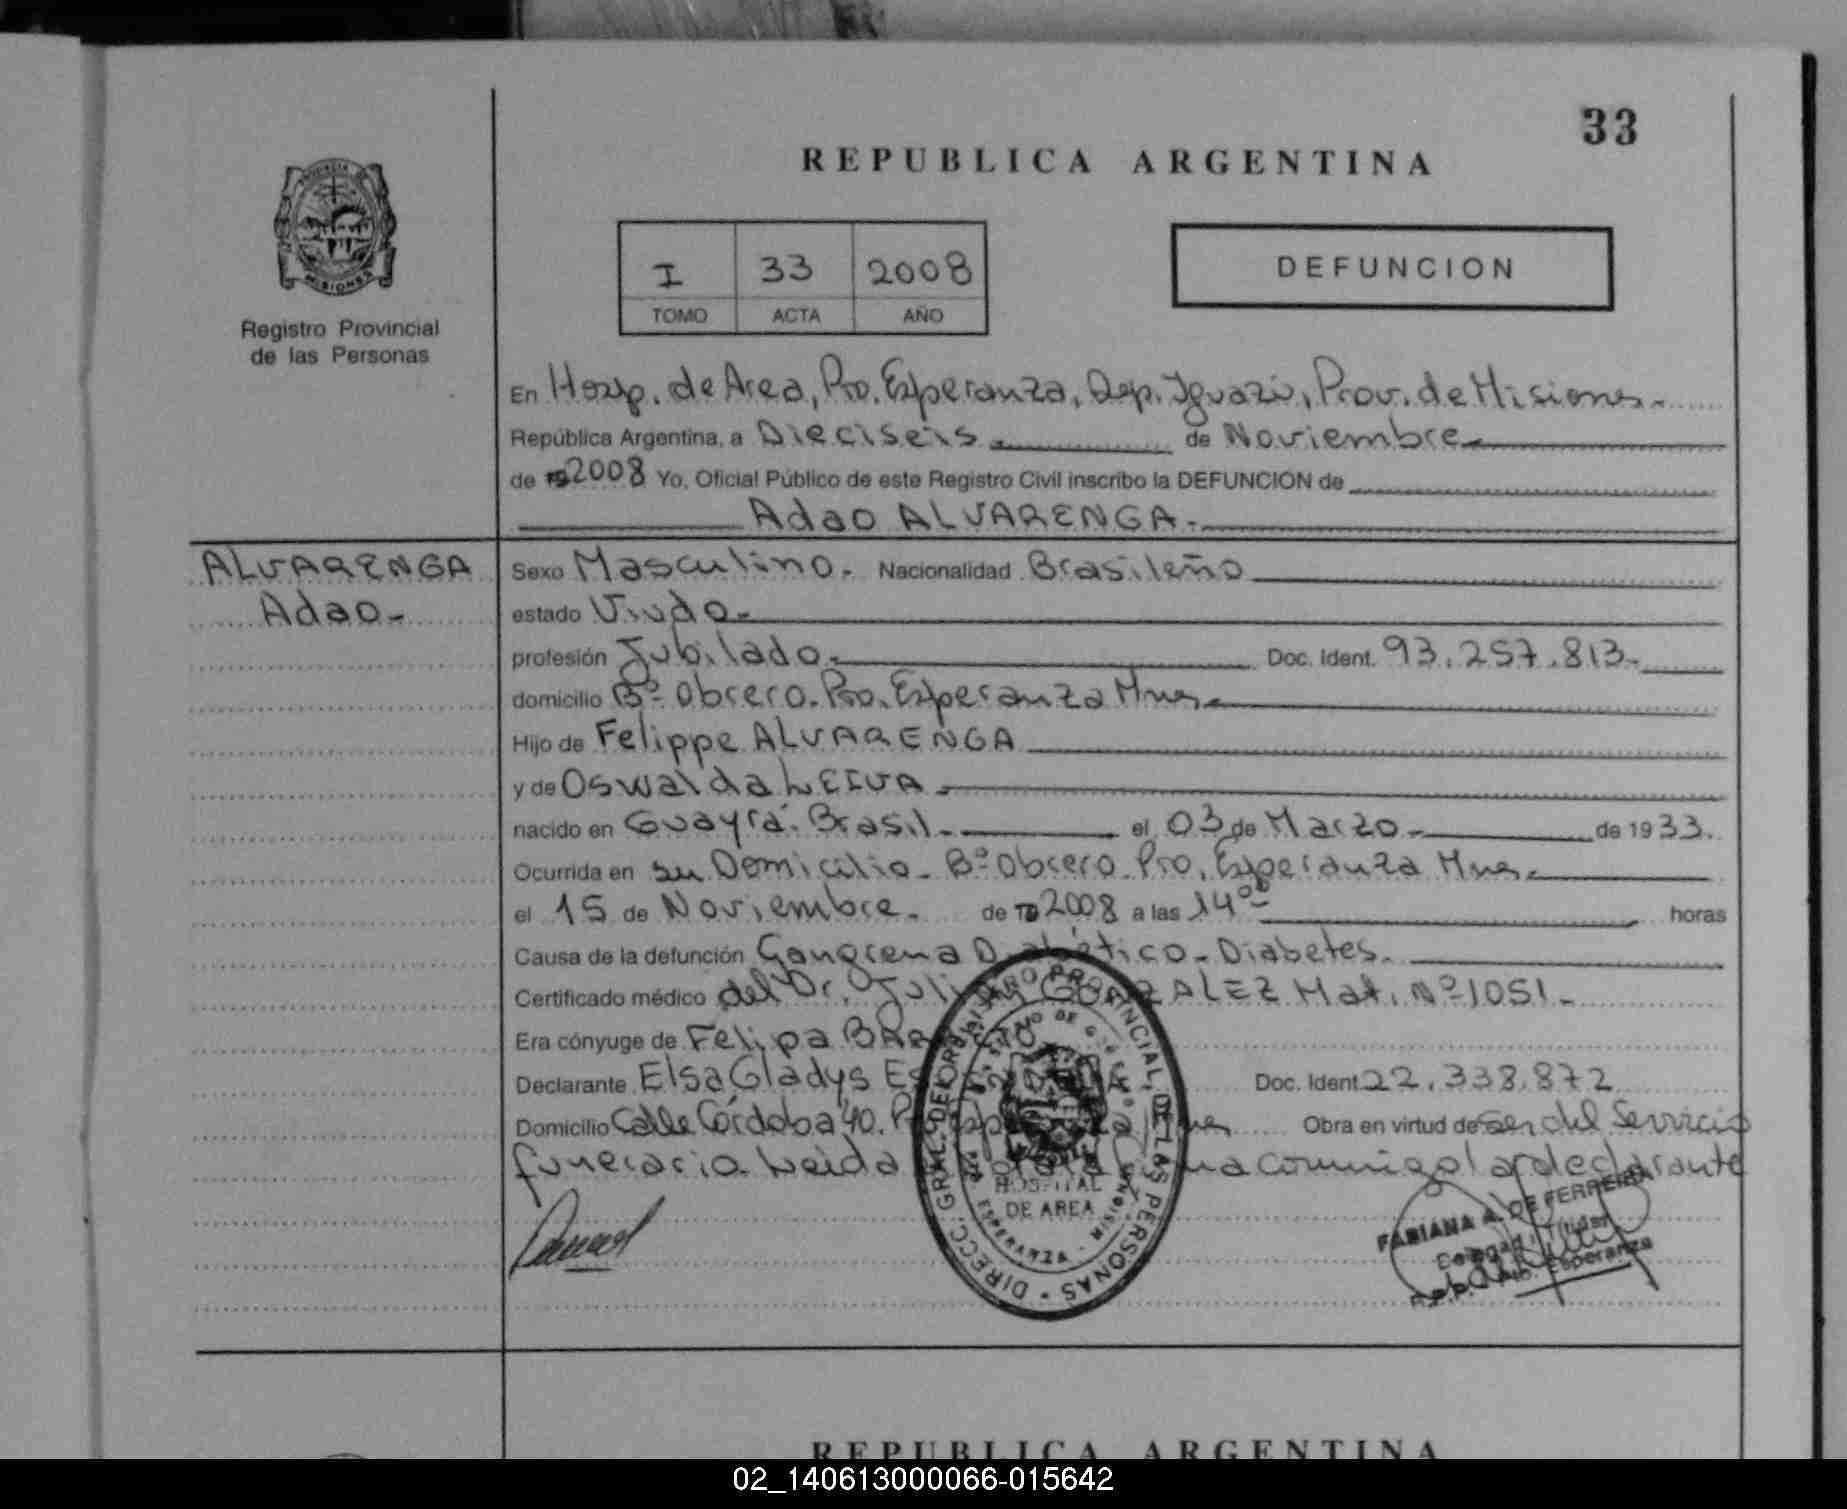 33
REPUBLICA ARGENTINA
PROVINCIA DE
MISIONES
Registro Provincial
de las Personas
I 33 2008
TOMO ACTA AÑO
DEFUNCION
En Hosp. de Area, Pto. Esperanza, Dep. Iguazú, Prov. de Misiones.
República Argentina, a Dieciseis. de Noviembre
de 19 2008 Yo, Oficial Público de este Registro Civil inscribo la DEFUNCION de
Adao ALVARENGA.
ALVARENGA
Adao-
Sexo Masculino. Nacionalidad Brasileño
estado Viudo-
profesión Jubilado. Doc. Ident. 93.257.813-
domicilio Bº Obrero. Pto. Esperanza Mnes.
Hijo de Felippe ALVARENGA
y de Oswalda LEIVA.
nacido en Guayrá. Brasil. el 03 de Marzo de 1933.
Ocurrida en su Domicilio. Bº Obrero. Pto. Esperanza Mnes.
el 15 de Noviembre. de 19 2008 a las 14⁰⁰ horas
Causa de la defunción Gangrena Diabético-Diabetes.
Certificado médico del Dr. GONZALEZ Mat. Nº 1051.
Era cónyuge de Felipa
Declarante Elsa Gladys Doc. Ident 22.338.872
Domicilio Calle Córdoba 40. Obra en virtud de ser del Servicio
funerario. Leida conmigo la declarante
DIRECC. GRAL. DEL REGISTRO PROVINCIAL DE LAS PERSONAS
HOSPITAL
DE AREA
ESPERANZA - MISIONES
FABIANA A. DE FERREIRA
Delegada Titular
Pto. Esperanza
REPUBLICA ARGENTINA
02_140613000066-015642